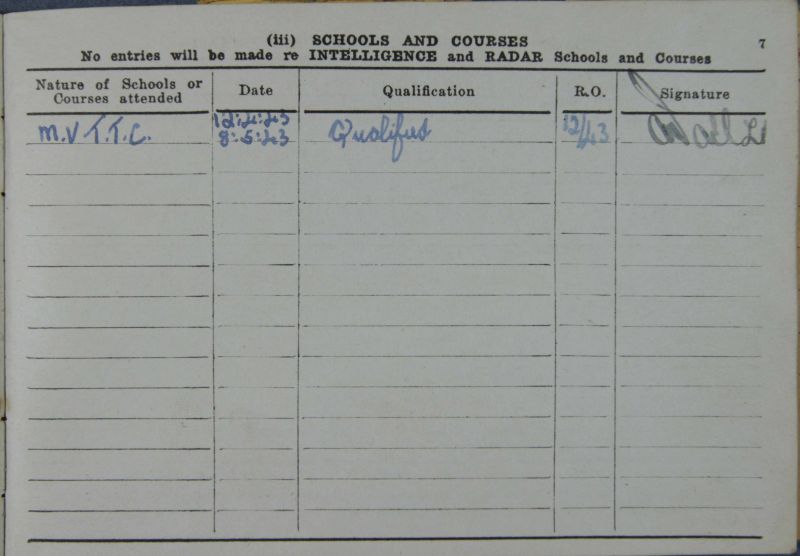 (iii) SCHOOLS AND COURSES 7
No entries will be made re INTELLIGENCE and RADAR Schools and Courses
Nature of Schools or
Courses attended
Date
Qualification
R.O.
Signature
M.V T.T.C. 12:4:43 Qualified 12/43
8:5:43